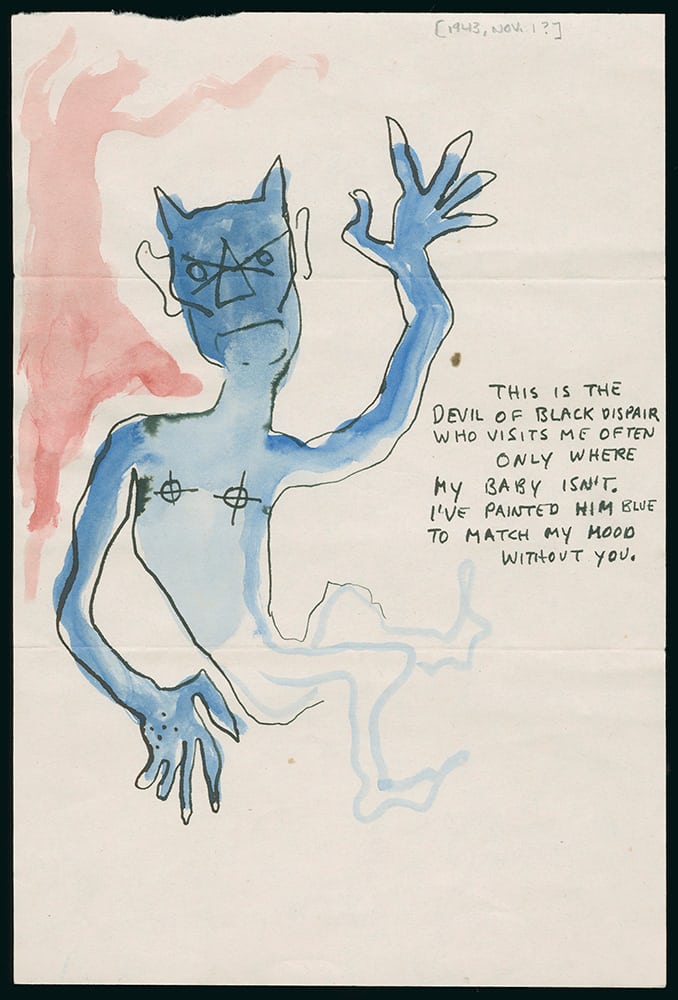 [1943, NOV. 1?]
THIS IS THE
DEVIL OF BLACK DISPAIR
WHO VISITS ME OFTEN
ONLY WHERE
MY BABY ISN'T.
I'VE PAINTED HIM BLUE
TO MATCH MY MOOD
WITHOUT YOU.